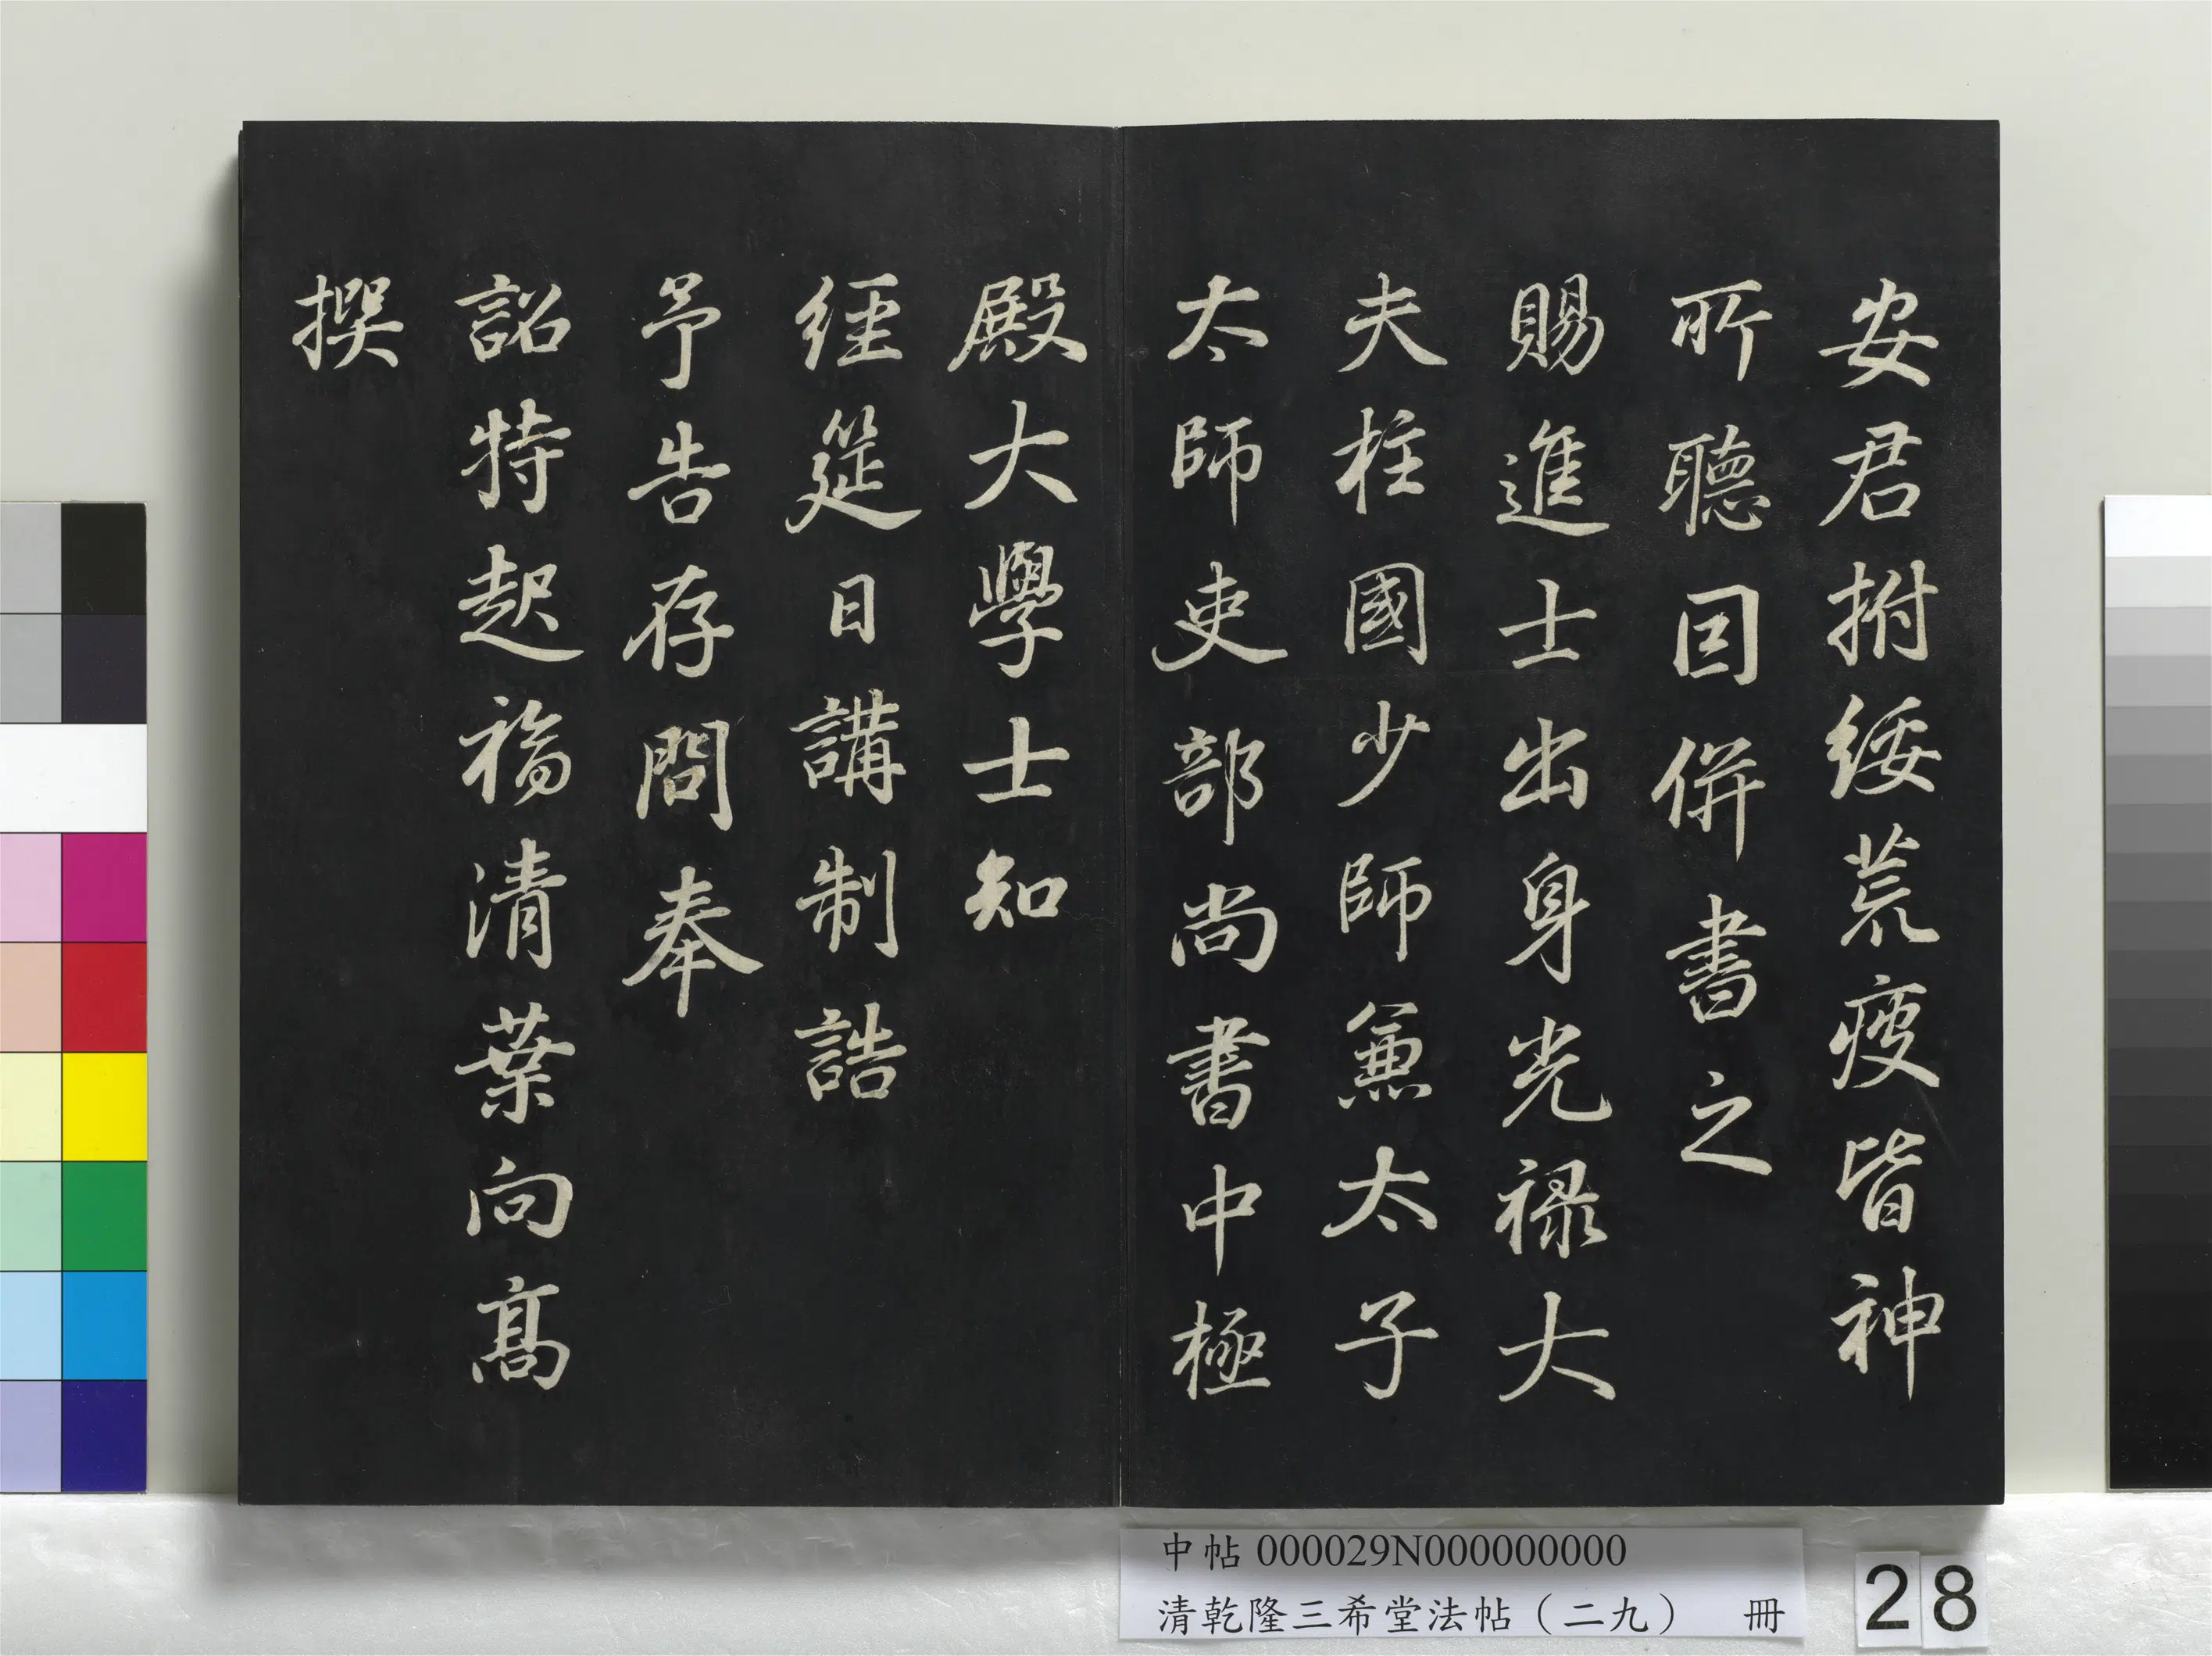 安君拊綏荒疲皆神
所聽因併書之
賜進士出身光祿大
夫柱國少師兼太子
太師吏部尚書中極
殿大學士知
經筵日講制誥
予告存問奉
詔特起福清葉向高
撰
中帖 000029N000000000
清乾隆三希堂法帖（二九） 冊
28